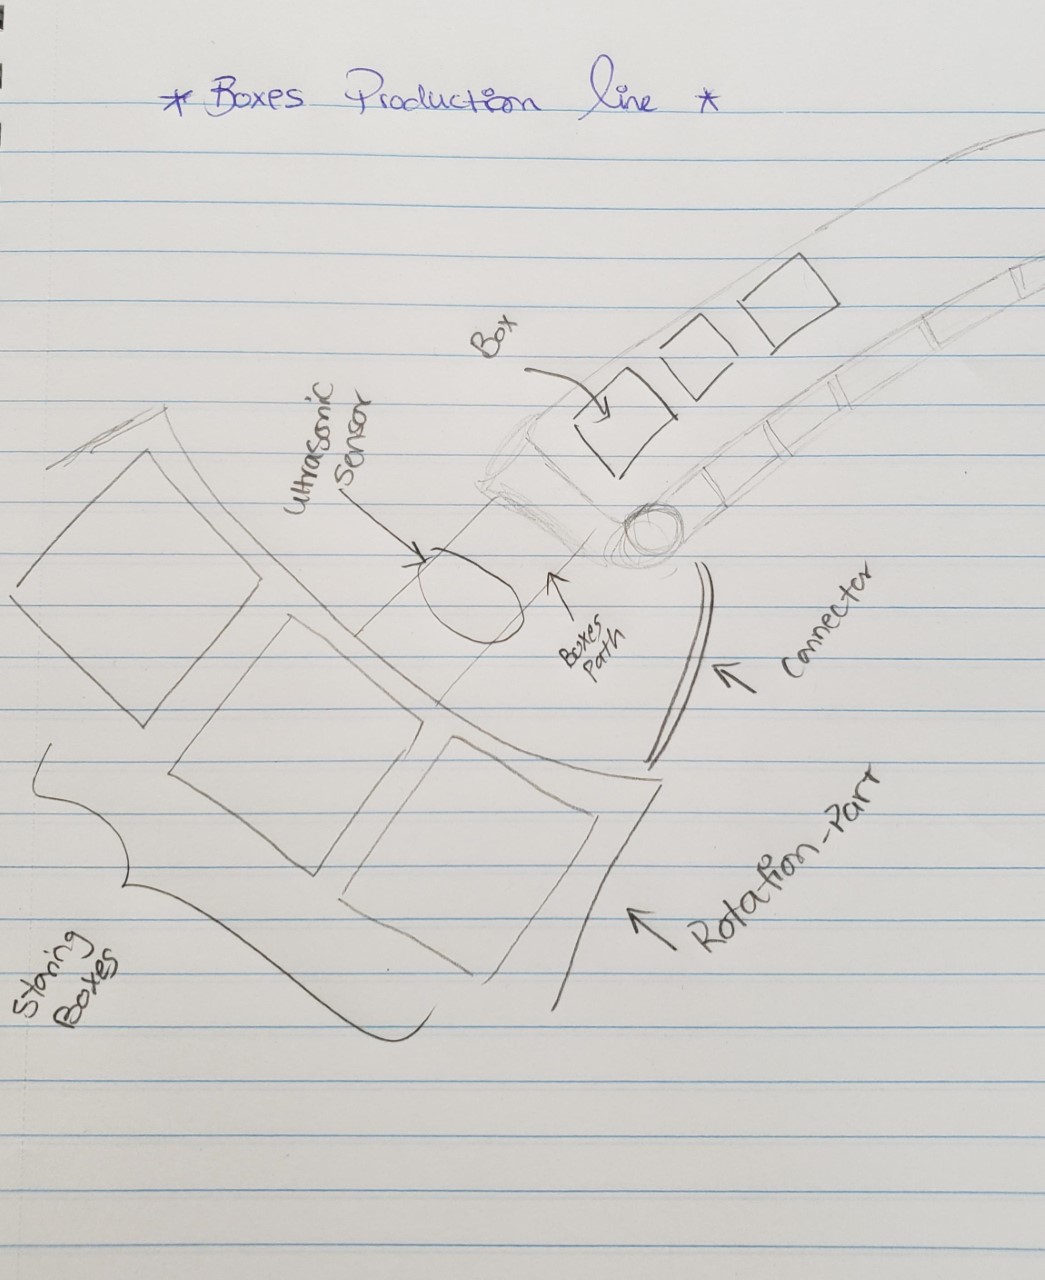 * Boxes Production line *
Box
Ultrasonic
Sensor
Boxes
Path
Connector
Rotation-Part
Storing
Boxes